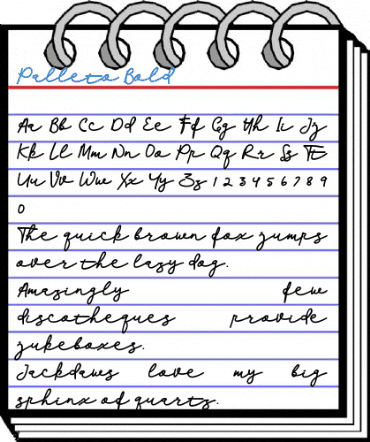 Palleta Bold
Aa Bb Cc Dd Ee Ff Gg Hh Ii Jj
Kk Ll Mm Nn Oo Pp Qq Rr Ss Tt
Uu Vv Ww Xx Yy Zz 1 2 3 4 5 6 7 8 9
0
The quick brown fox jumps
over the lazy dog.
Amazingly few
discotheques provide
jukeboxes.
Jackdaws love my big
sphinx of quartz.